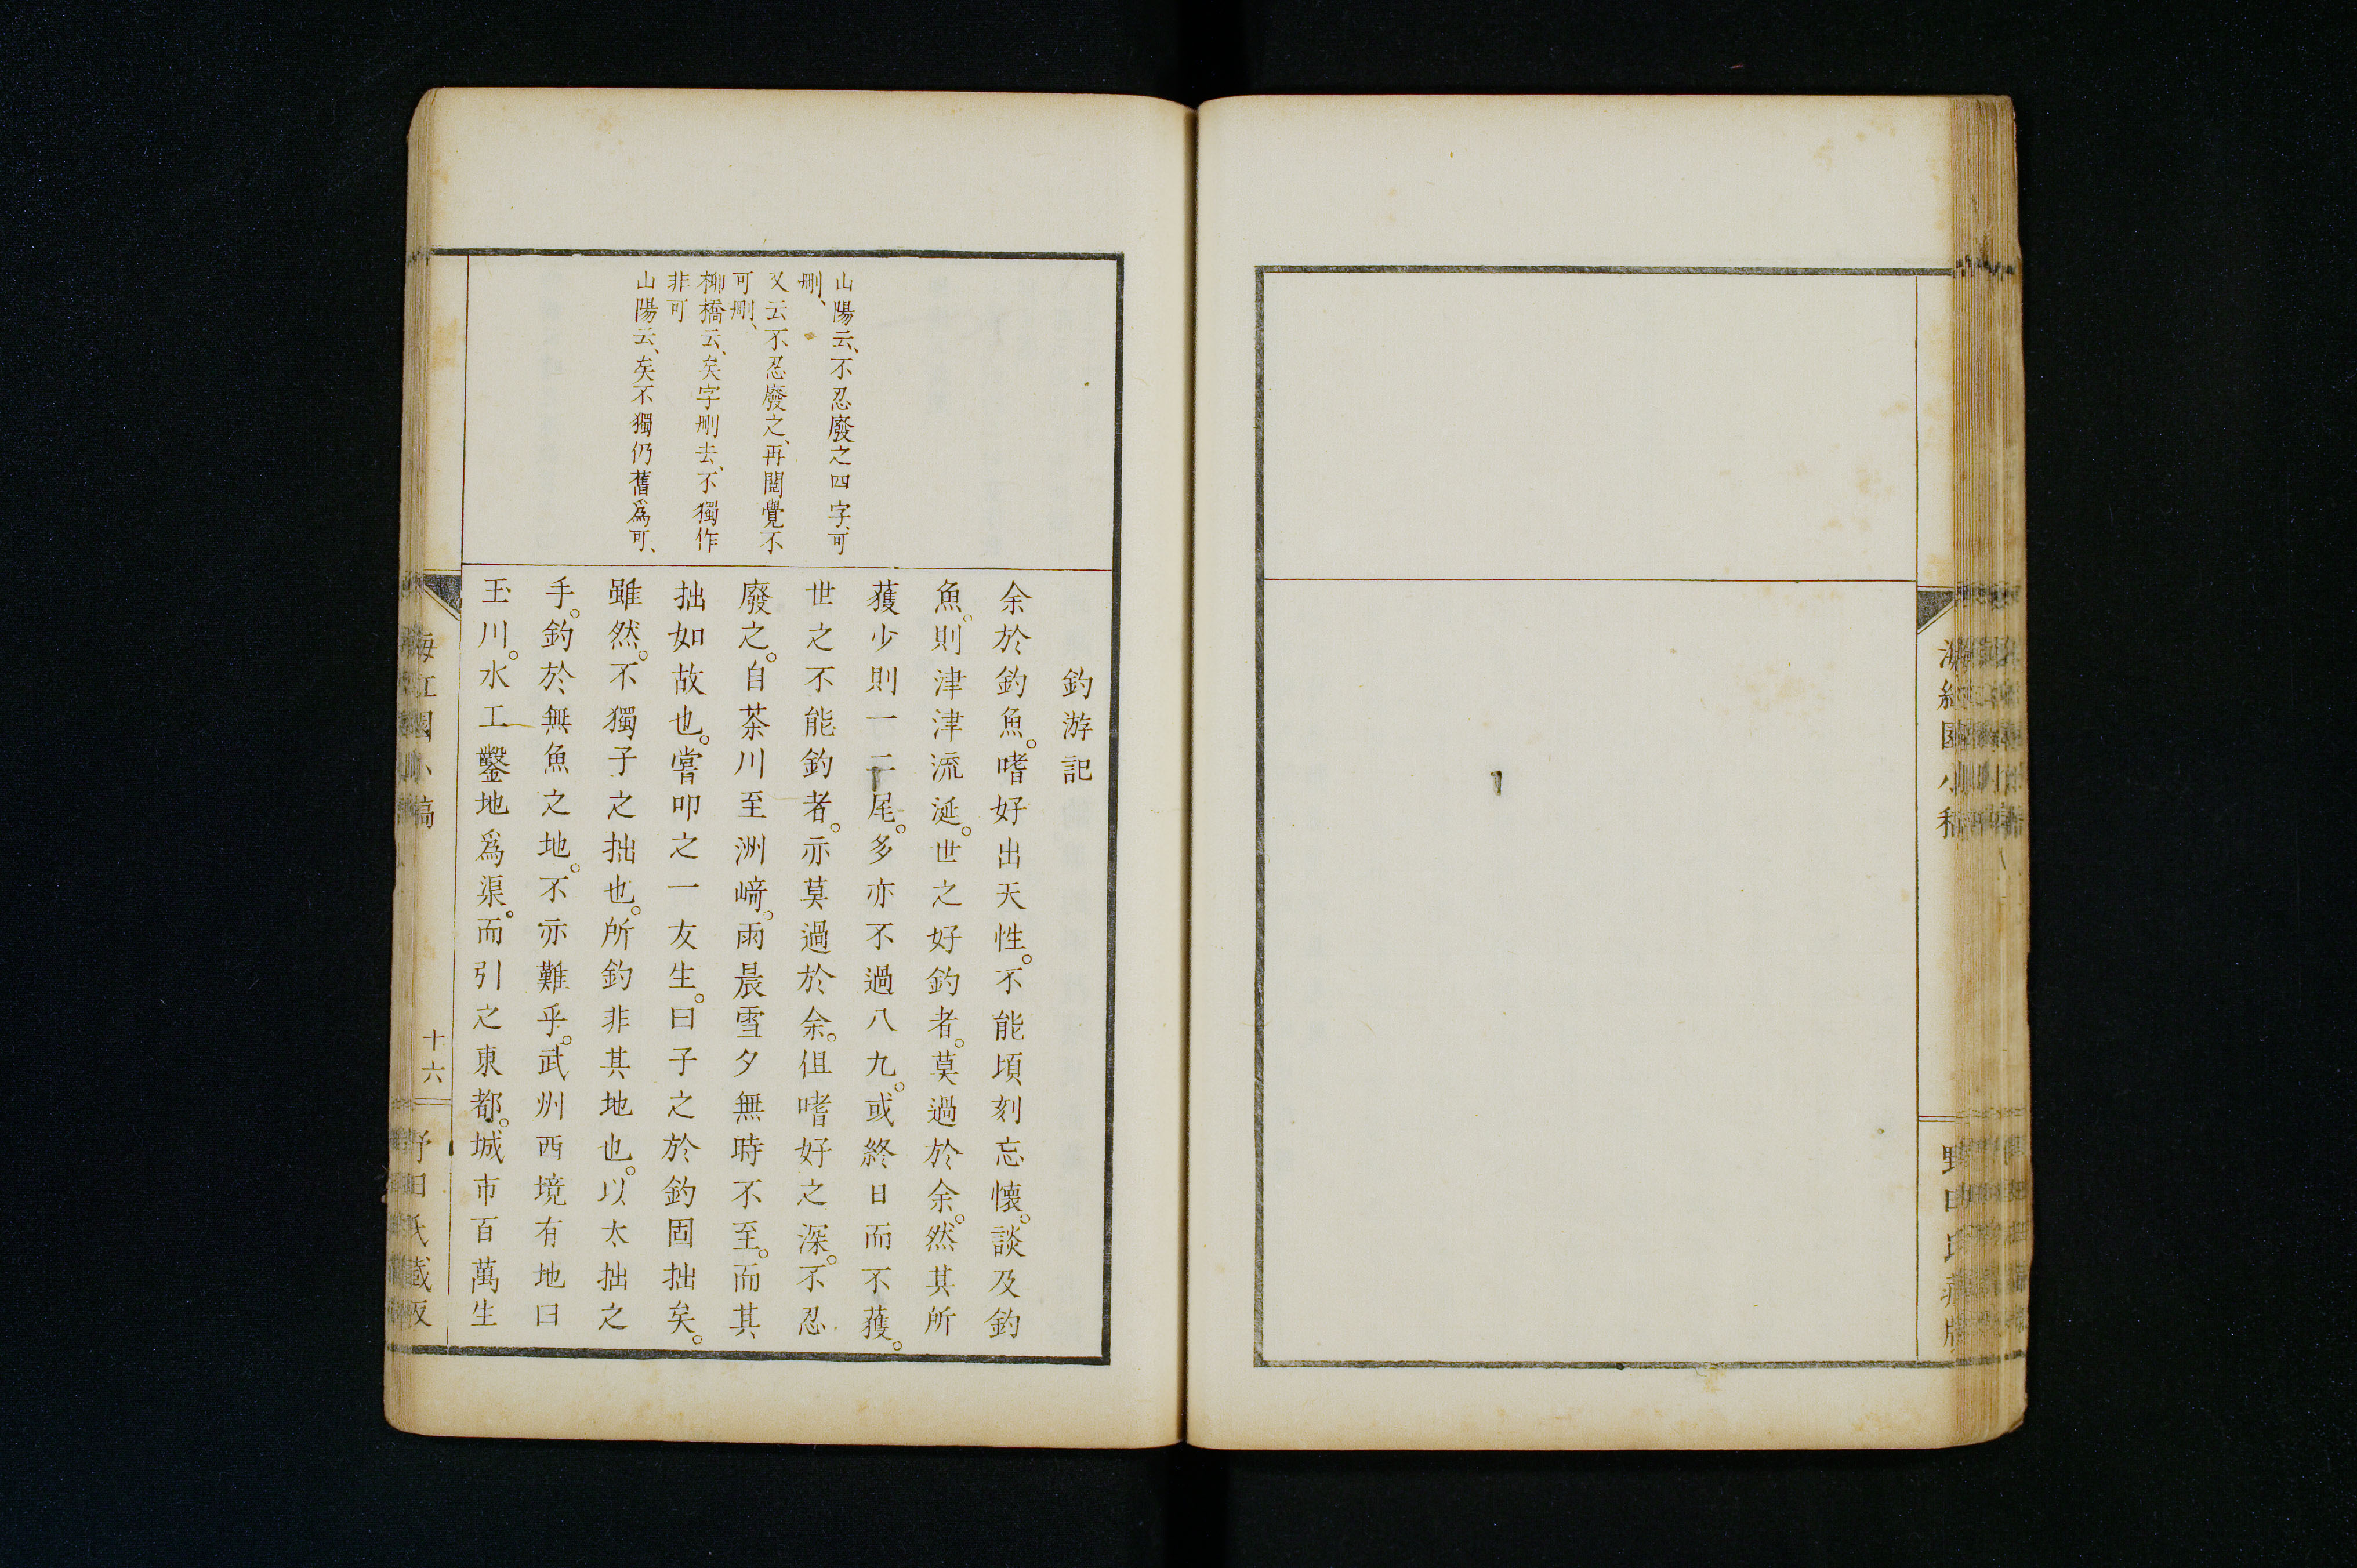 釣游記
余於釣魚。嗜好出天性。不能頃刻忘懷。談及釣
魚。則津津流涎。世之好釣者。莫過於余。然其所
獲少則一二尾。多亦不過八九。或終日而不獲。
世之不能釣者。亦莫過於余。但嗜好之深。不忍
廢之。自茶川至洲﨑。雨晨雪夕無時不至。而其
拙如故也。嘗叩之一友生。曰子之於釣固拙矣。
雖然。不獨子之拙也。所釣非其地也。以太拙之
手。釣於無魚之地。不亦難乎。武州西境有地曰
玉川。水工鑿地爲渠。而引之東都。城市百萬生
山陽云、不忍廢之四字、可
刪、
又云不忍廢之、再閲覺不
可刪、
柳橋云、矣字刪去、不獨作
非可
山陽云、矣不獨仍舊爲可、
海紅園小稿
十六
野田氏藏版